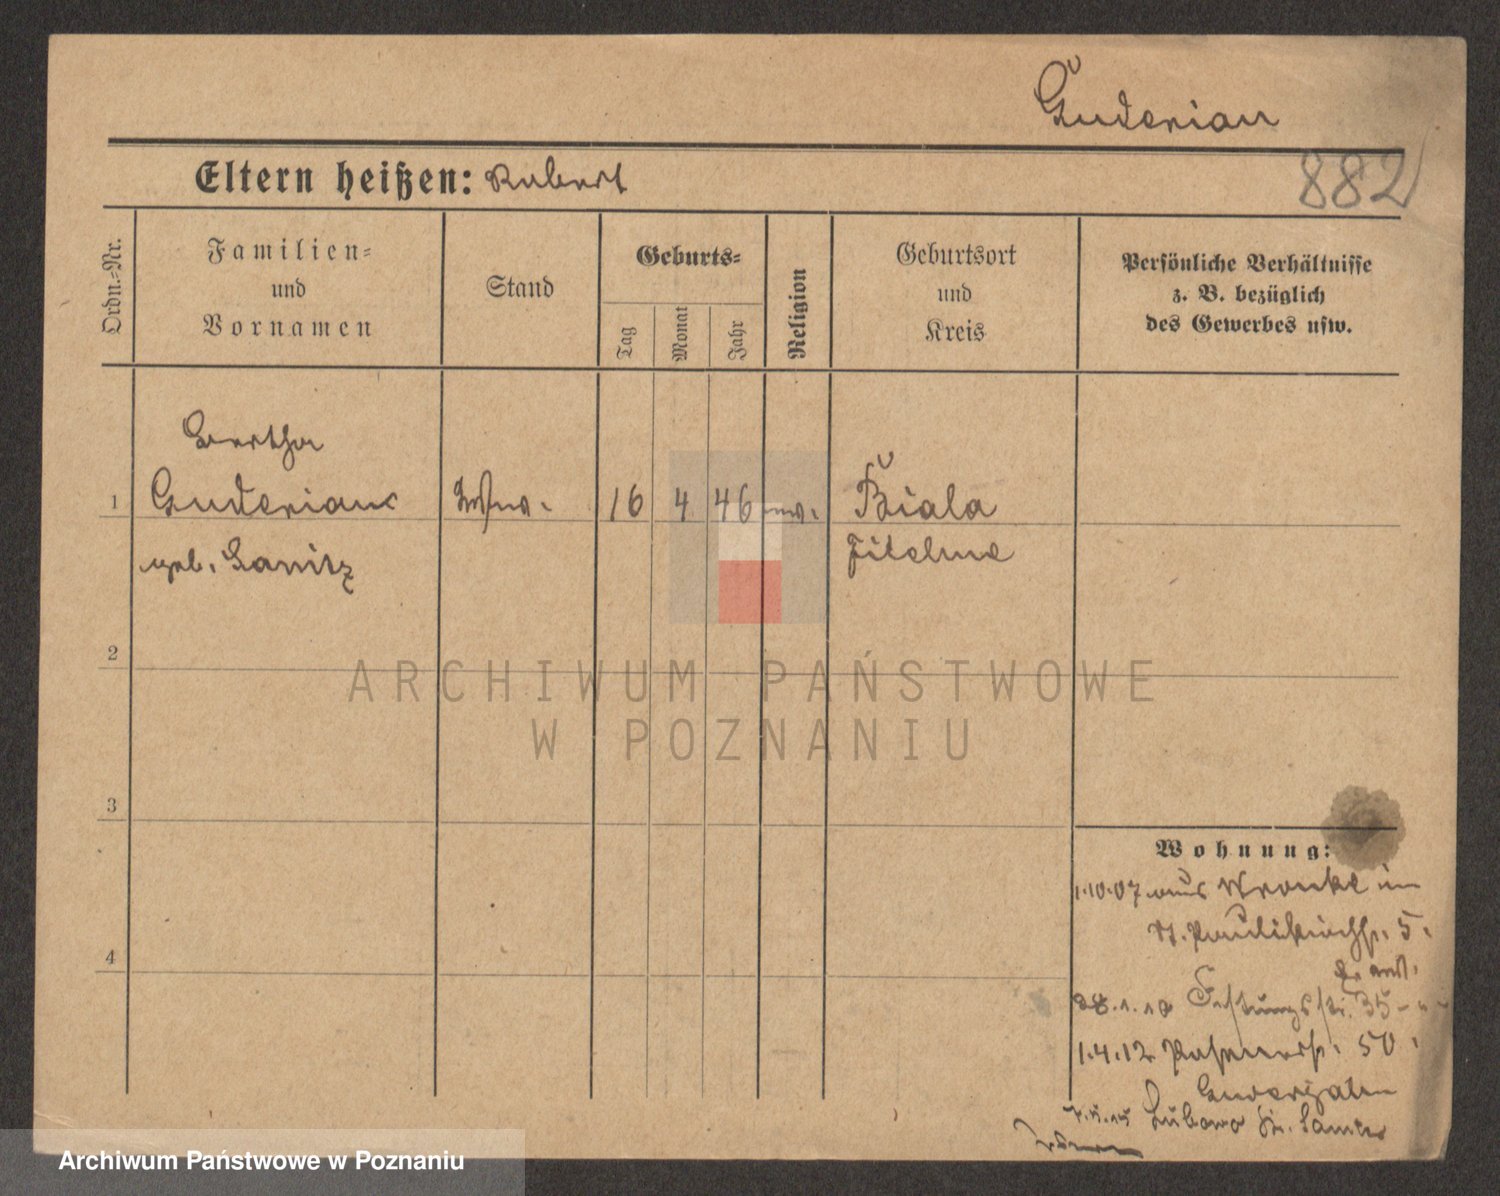 Guderian
882
Eltern heißen: Robert
Ordn.-Nr.
Familien-
und
Vornamen
Stand
Geburts-
Tag
Monat
Jahr
Religion
Geburtsort
und
Kreis
Persönliche Verhältnisse
z. B. bezüglich
des Gewerbes usw.
Bertha
1 Guderian 16 4 46 Biala
geb. Lanitz Filehne
2
3
4
ARCHIWUM PAŃSTWOWE
W POZNANIU
Wohnung:
1.10.07 aus Wronke in
St. Paulikirchstr. 5.
28.1.10 Festungsstr. 35
1.4.12 Posenerstr. 50
Lubowo Kr. Samter
Archiwum Państwowe w Poznaniu